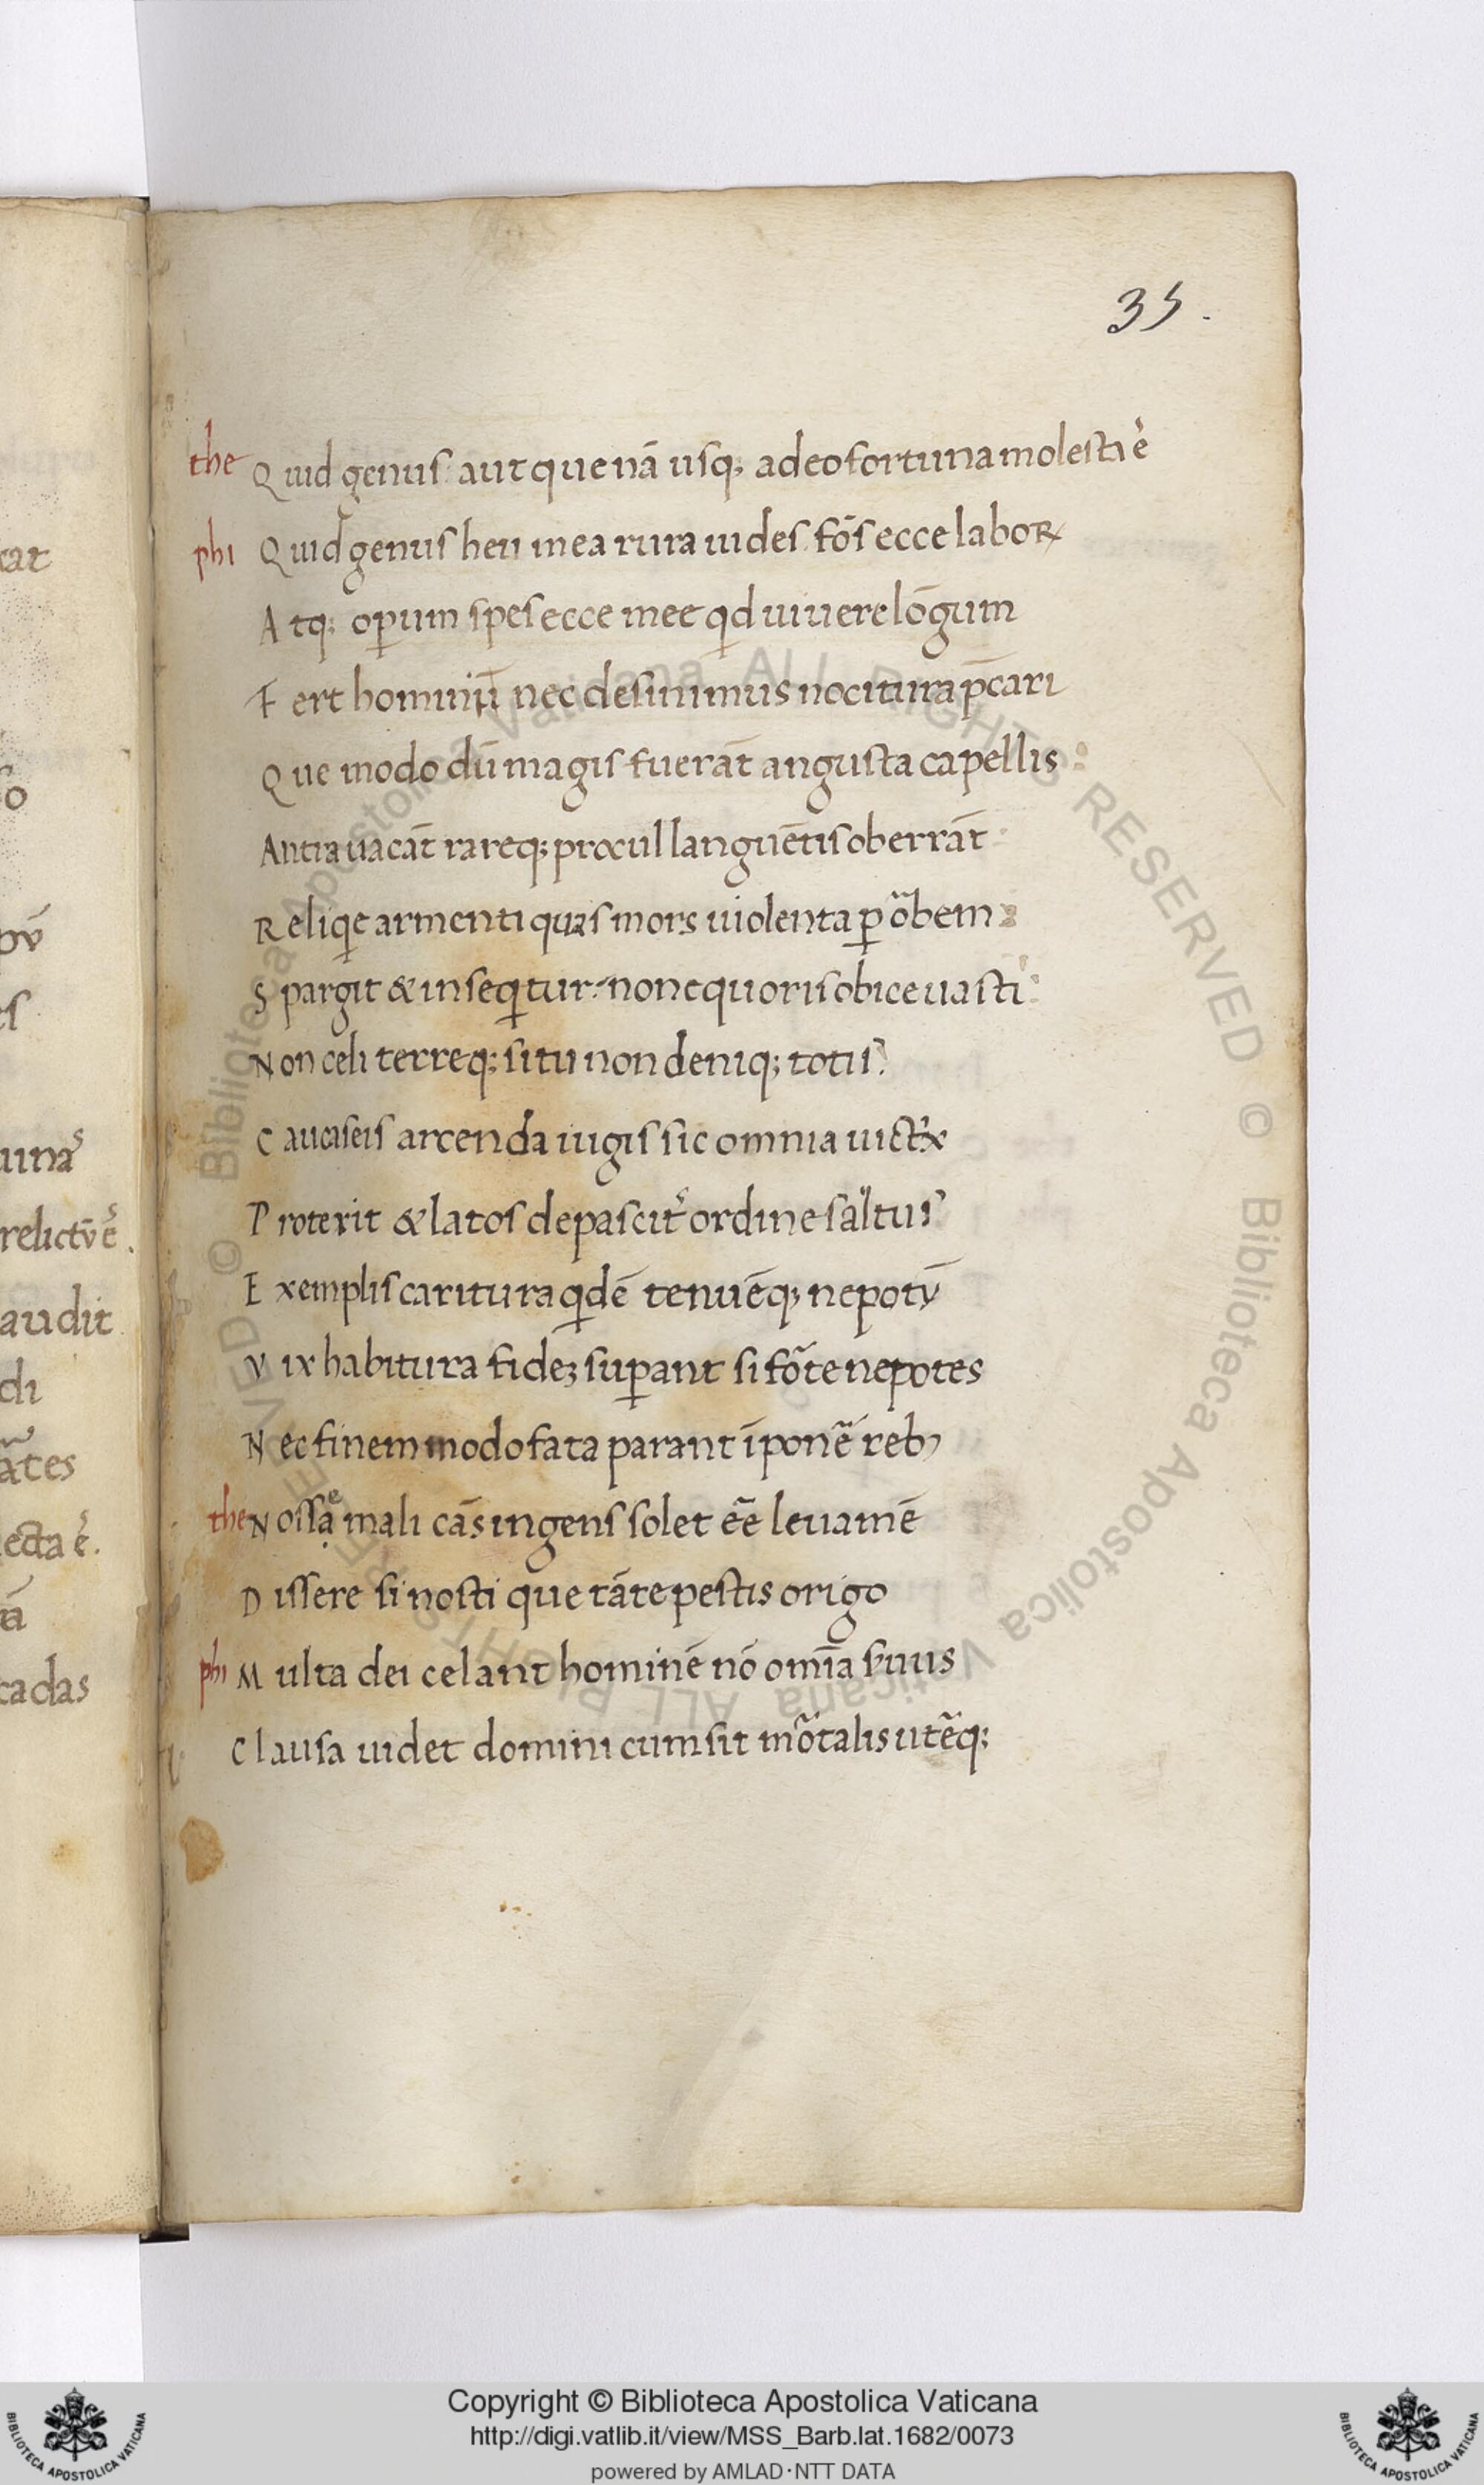 35.
the Quid genus aut que nā usq; adeo fortuna molesti ē
phi Quid genus heu mea rura uides fōs ecce laboꝝ
Atq; oꝑum spes ecce mee qd uiuere lōgum
Fert hominū nec desinimus nocitura p̄cari
Que modo dū magis fuerāt angusta capellis
Antra uacāt rareq; procul languētis oberrāt
Reliqe armenti quas mors uiolenta ꝑ o͂bem
Spargit & inseqitur non equoris obice uasti
Non celi terreq; situ non deniq; totis
Caucaseis arcenda iugis sic omnia uictͥx
Proterit & latos depascit᷒ ordine saltus
Exemplis caritura qdē tenuēq; nepotū
Vix habitura fideꝫ suꝑant si fo͂te nepotes
Nec finem modo fata parant īpone͂ reb;
the Nosse mali cās ingens solet eē leuamē
Dissere si nosti que tāte pestis origo
phi Multa dei celant hominē nō omīa seruus
Clausa uidet domini cum sit mo͂talis ute͂q;
cat
o
uina᷒
relictū ē᷒.
audit
di
a͂tes
lecta ē.
cadas
© Biblioteca Apostolica Vaticana ALL RIGHTS RESERVED © Biblioteca Apostolica Vaticana ALL RIGHTS RESERVED
BIBLIOTECA APOSTOLICA VATICANA
Copyright © Biblioteca Apostolica Vaticana
http://digi.vatlib.it/view/MSS_Barb.lat.1682/0073
powered by AMLAD·NTT DATA
BIBLIOTECA APOSTOLICA VATICANA